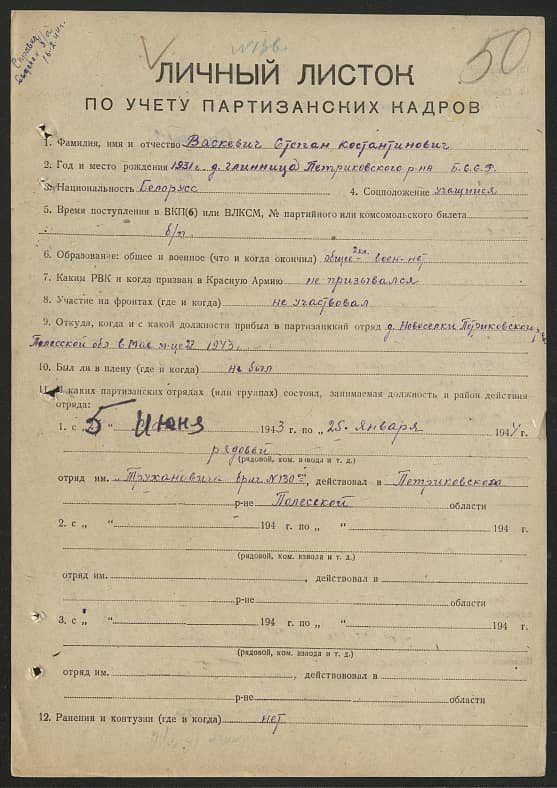 Справка
16.X.44 г.
N 136
50
ЛИЧНЫЙ ЛИСТОК
ПО УЧЕТУ ПАРТИЗАНСКИХ КАДРОВ
1. Фамилия, имя и отчество Васкевич Степан Костантинович
2. Год и место рождения 1931 г. д. Глинница Петриковского р-на Б.С.С.Р.
3. Национальность Белорусс 4. Соцположение учащийся
5. Время поступления в ВКП(б) или ВЛКСМ, № партийного или комсомольского билета
б/п
6. Образование: общее и военное (что и когда окончил) общее 2 кл. воен-нет
7. Каким РВК и когда призван в Красную Армию не призывался
8. Участие на фронтах (где и когда) не участвовал
9. Откуда, когда и с какой должности прибыл в партизанский отряд д. Новоселки Птриковского
Полесской обл в Мае м-це 1943 г.
10. Был ли в плену (где и когда) не был
11. В каких партизанских отрядах (или группах) состоял, занимаемая должность и район действия
отряда:
1. с „5" Июня 1943 г. по „25. января 1944 г.
рядовой
(рядовой, ком. взвода и т. д.)
отряд им. Трухановича бриг. N 130ая, действовал в Петриковского
р-не Полесской области
2. с „ " 194 г. по „ " 194 г.
(рядовой, ком. взвола и т. д.)
отряд им. , действовал в
р-не области
3. с „ " 194 г. по „ " 194 г.
(рядовой, ком. взвода и т. д.)
отряд им. , действововал в
р-не области
12. Ранения и контузии (где и когда) нет